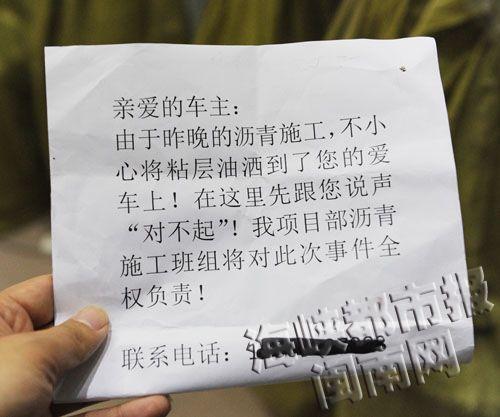 亲爱的车主:
由于昨晚的沥青施工,不小
心将粘层油洒到了您的爱
车上！在这里先跟您说声
“对不起”！我项目部沥青
施工班组将对此次事件全
权负责！
联系电话:
海峡都市报
闽南网